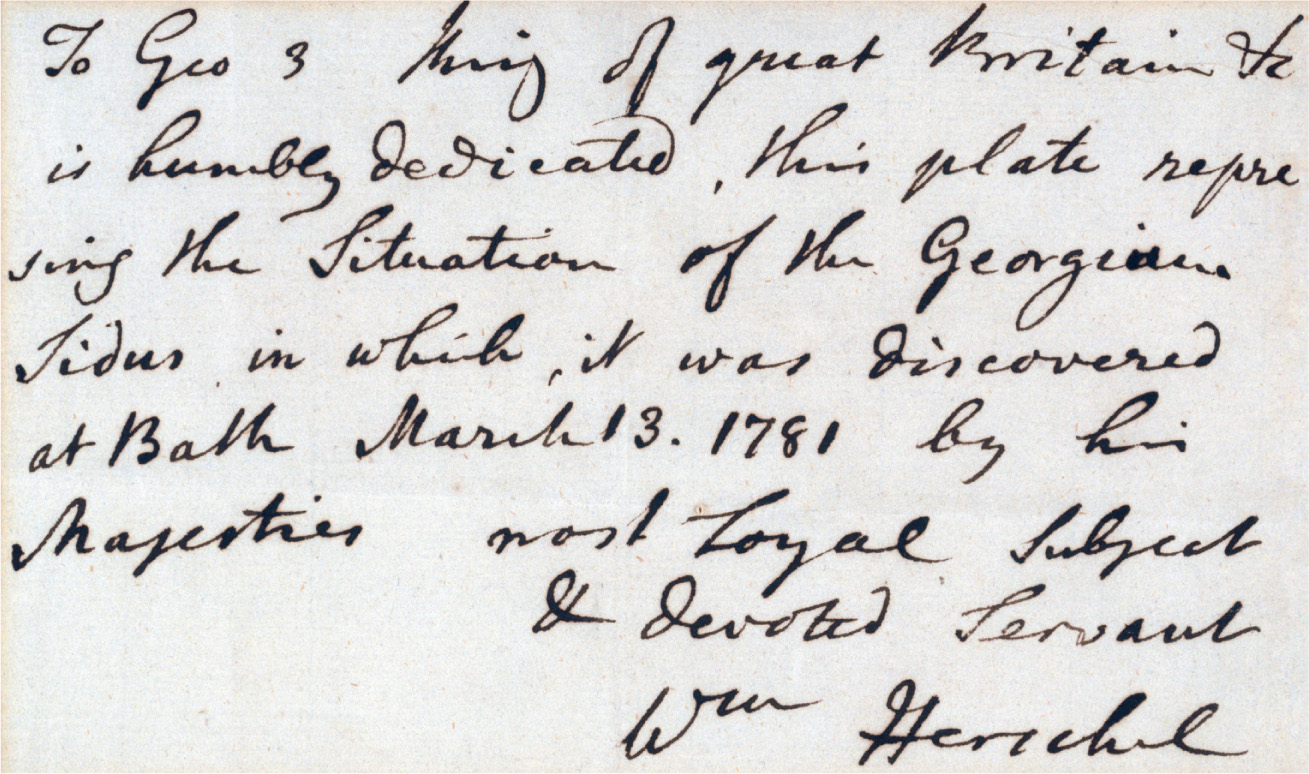 To Geo 3 King of great Britain &c
is humbly dedicated, this plate repre
sing the Situation of the Georgian
Sidus in which, it was discovered
at Bath March 13. 1781 by his
Majesties most Loyal Subject
& devoted Servant
Wm Herschel